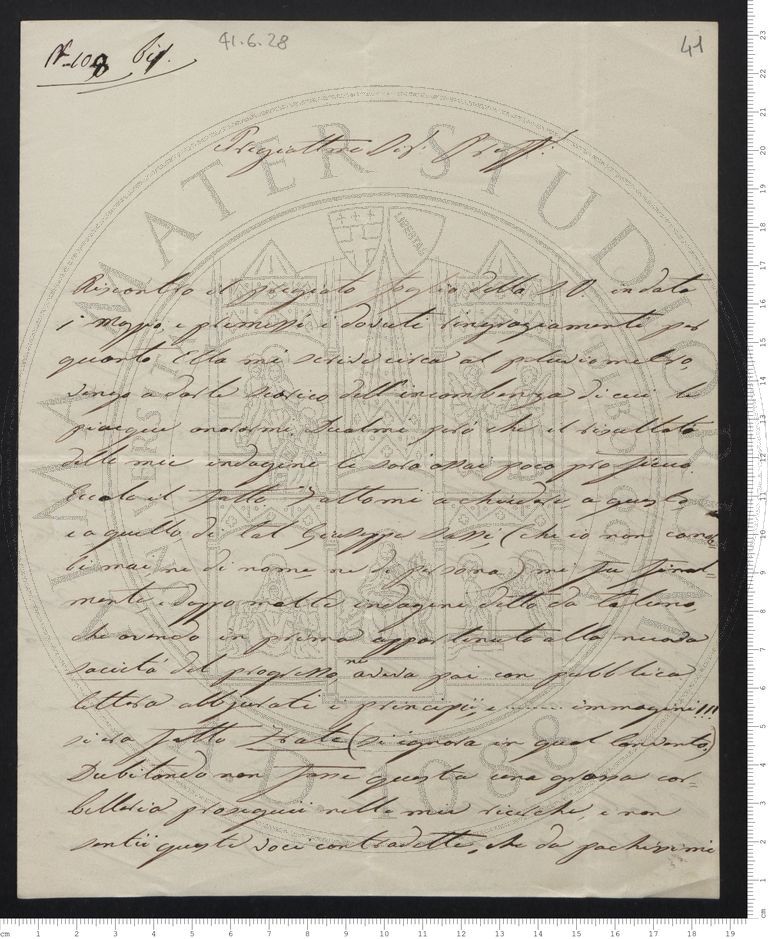 N. 108 bis.
41.6.28
41
Pregiatmo Sigr. Proffr.
Riscontro il pregiato foglio della S.V. in data
i Maggio, e premessi i dovuti ringraziamenti per
quanto Ella mi scrive circa al pluviometro,
vengo a darle scarico dell'incombenza di cui le
piacque onorarmi. Duolmi però che il risultato
delle mie indagini le sarà assai poco proficuo.
Eccole il fatto. Dattomi a chiedere, a questo,
e a quello, di tal Giuseppe Sassi, (che io non conob=
bi mai, ne di nome, ne di persona) mi fu final=
mente, e doppo molte indagini detto da taluno,
che avendo in prima appartenuto alla nuova
società del progresso, ne aveva poi con pubblica
lettera abjurati i principii, e immagini!!!
si era fatto Frate (si ignora in qual Convento.)
Dubitando non fosse questa una grossa cor=
belleria proseguii nelle mie ricerche, e non
sentii queste voci contradette, che da pochissimi
ALMA MATER STUDIORUM
A.D. 1088
LIBERTAS